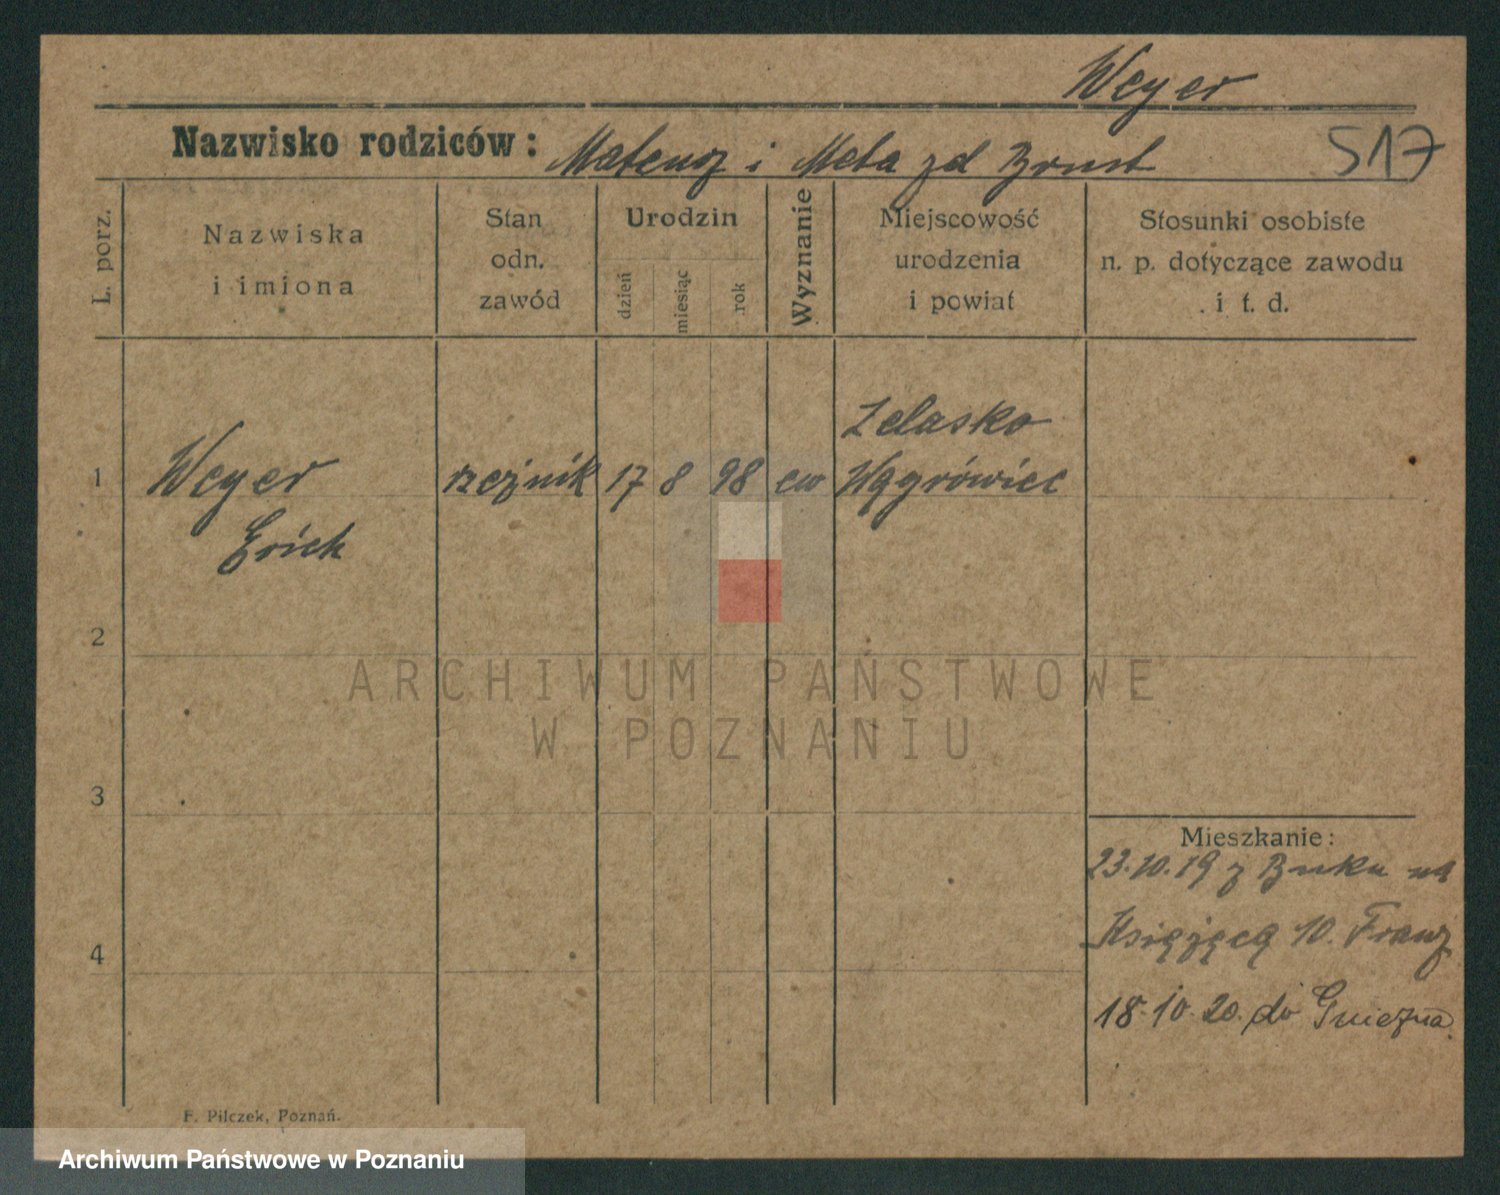 Weyer
Nazwisko rodziców: Mateusz i Meta zd Brust
517
L. porz.
Nazwiska
i imiona
Stan
odn.
zawód
Urodzin
dzień
miesiąc
rok
Wyznanie
Miejscowość
urodzenia
i powiat
Stosunki osobiste
n. p. dotyczące zawodu
i t. d.
1
Weyer
Erich
rzeźnik
17
8
98
ew
Zelasko
Wągrówiec
2
3
4
ARCHIWUM PAŃSTWOWE
W POZNANIU
Mieszkanie:
23.10.19 z Buku na
Księżęcą 10. Franz
18.10.20. do Gniezna
F. Pilczek, Poznań.
Archiwum Państwowe w Poznaniu